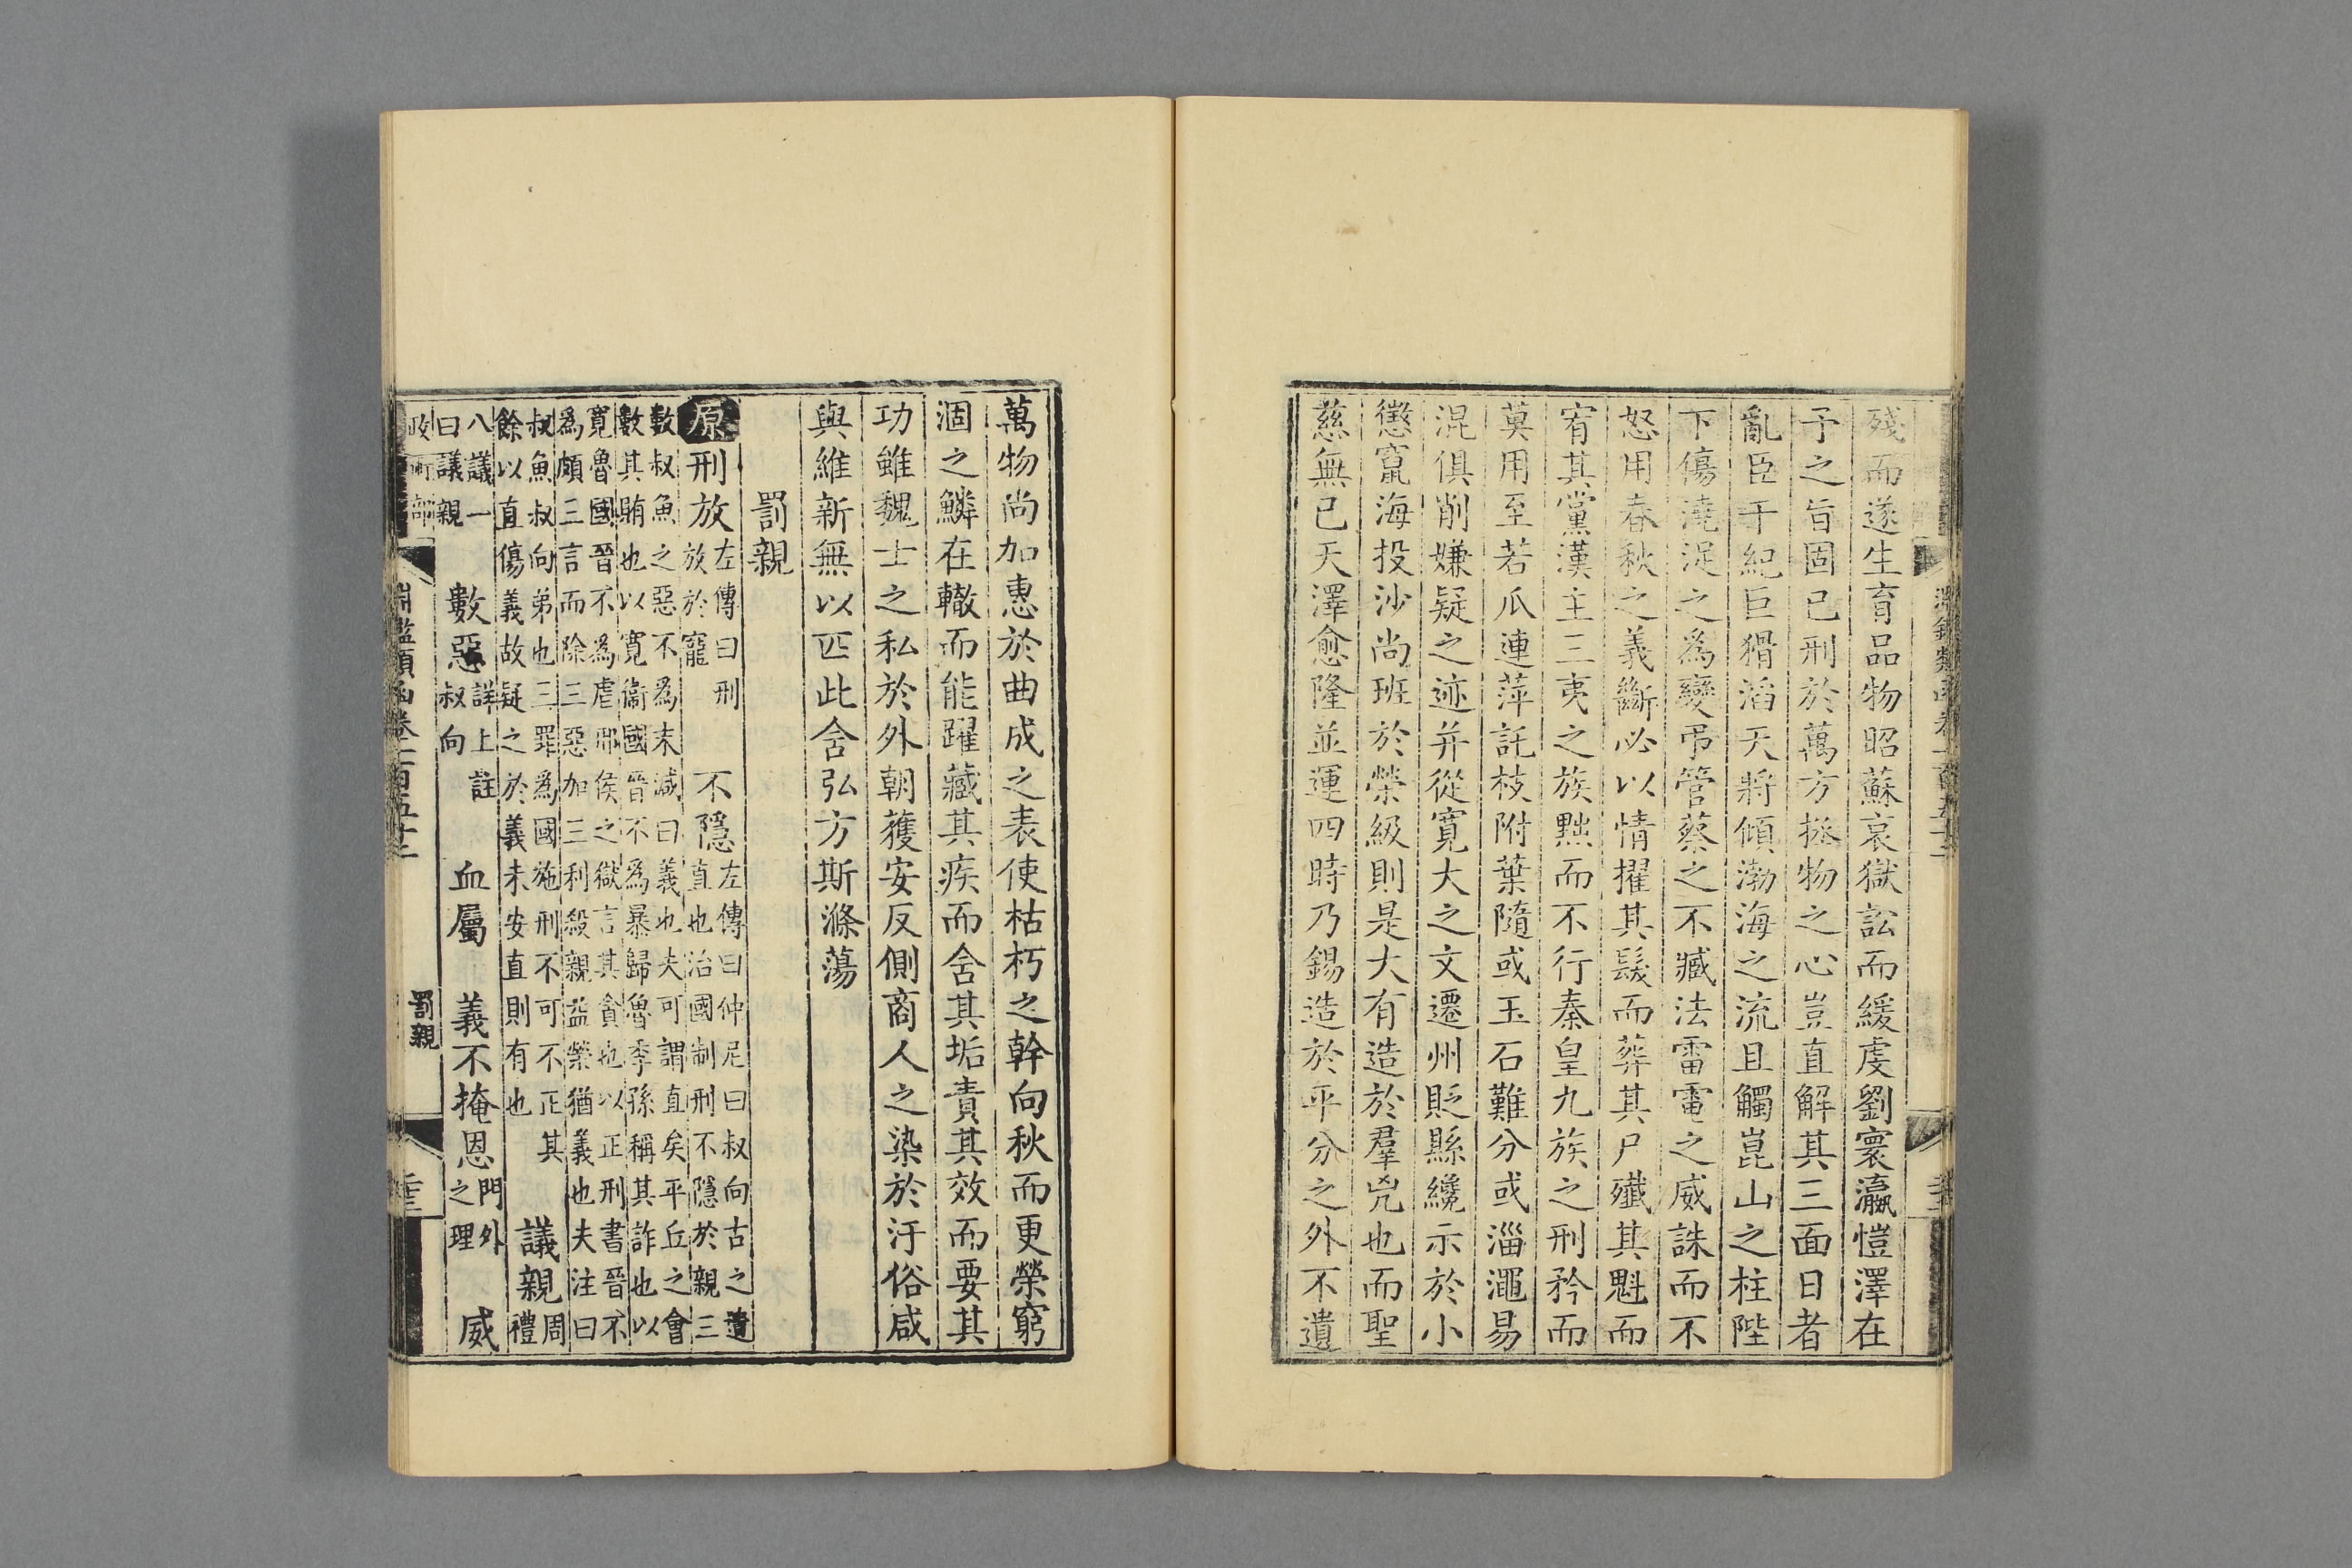 殘而遂生育品物昭蘇哀獄訟而緩虔劉寰瀛愷澤在
予之旨固已刑於萬方拯物之心豈直解其三面日者
亂臣于紀巨猾滔天將傾渤海之流且觸崑山之柱陛
下傷澆浞之為變弔管蔡之不臧法雷電之威誅而不
怒用春秋之義斷必以情擢其髮而葬其尸殲其魁而
宥其黨漢主三夷之族黜而不行秦皇九族之刑矜而
莫用至若瓜連萍託枝附葉隨或玉石難分或淄澠易
混俱削嫌疑之迹并從寬大之文遷州貶縣纔示於小
懲竄海投沙尚班於榮級則是大有造於羣兇也而聖
慈無已天澤愈隆並運四時乃錫造於平分之外不遺
萬物尚加惠於曲成之表使枯朽之幹向秋而更榮窮
涸之鱗在轍而能躍藏其疾而舍其垢責其效而要其
功雖魏士之私於外朝蒦安反側商人之染於汙俗咸
與維新無以匹此舍弘方斯滌蕩
罰親
原刑放左傳曰刑放於寵 不隱左傳曰仲尼曰叔向古之遺直也治國制刑不隱於親三
數叔魚之惡不為末減曰義也夫可謂直矣平丘之會數其賄也以寬衛國晉不為暴歸魯季孫稱其詐也以
寬魯國晉不為虐邢侯之獄言其貪也以正刑書晉不為頗三言而除三惡加三利殺親益榮猶義也夫注曰
叔魚叔向弟也三罪為國施刑不可不正其餘以直傷義故疑之於義未安直則有也 議親周禮
八議一曰議親 數惡詳上註叔向 血屬 義不掩恩門外之理 威
政術部 淵鑑類函卷一百五十二 罰親